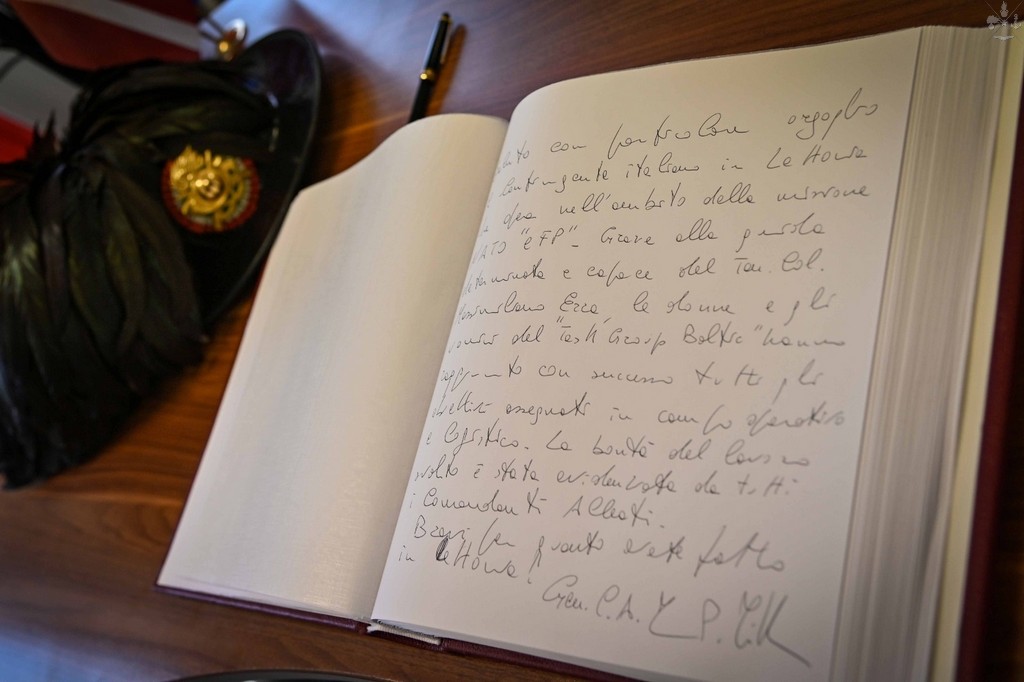 con particolare orgoglio
contingente italiano in Lettonia
opera nell'ambito della missione
NATO "eFP". Grazie alla guida
determinata e capace del Ten. Col.
Massimiliano le donne e gli
uomini del "Task Group Baltic" hanno
raggiunto con successo tutti gli
obiettivi assegnati in campo operativo
e logistico. La bontà del lavoro
svolto è stata evidenziata da tutti
i Comandanti Alleati.
Bravi per quanto avete fatto
in Lettonia!
Gen. C.A.